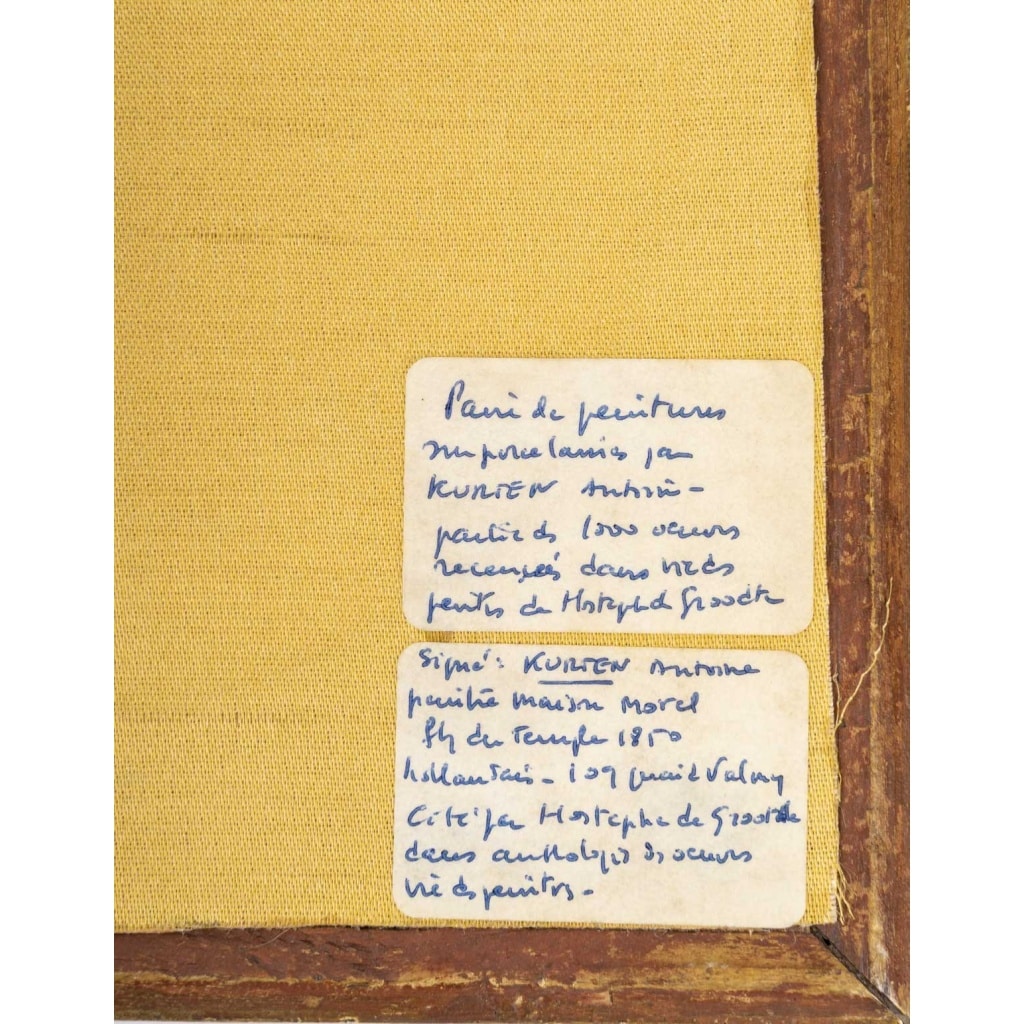 Paire de peintures
sur porcelaines par
KURTEN Antoine -
partie des 1000 oeuvres
recensées dans vie des
peintres de Hostephe de Groodte
Signé : KURTEN Antoine
peintre maison Morel
fg du Temple 1850
hollandais - 109 quai de Valmy
Cité par Hostephe de Grootde
dans anthologie des oeuvres
vie des peintres -